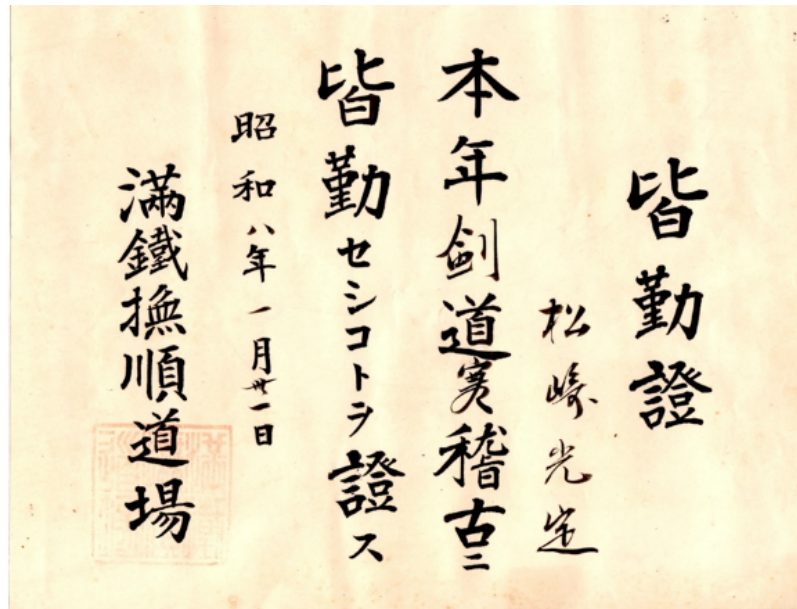 皆勤證
松崎光定
本年剣道寒稽古ニ
皆勤セシコトヲ證ス
昭和八年一月卅一日
滿鐵撫順道場